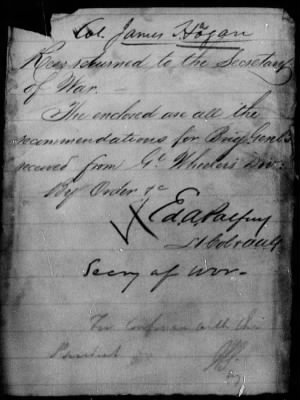 Col. James Hogan
Resp returned to the Secretary
of War.
The enclosed are all the
recommendations for Brig Genl's
received from Gl Wheeler's Div.
By Order &c
Ed. A. Palfrey
Lt Col & aag
Secry of War.
For conference with the
President